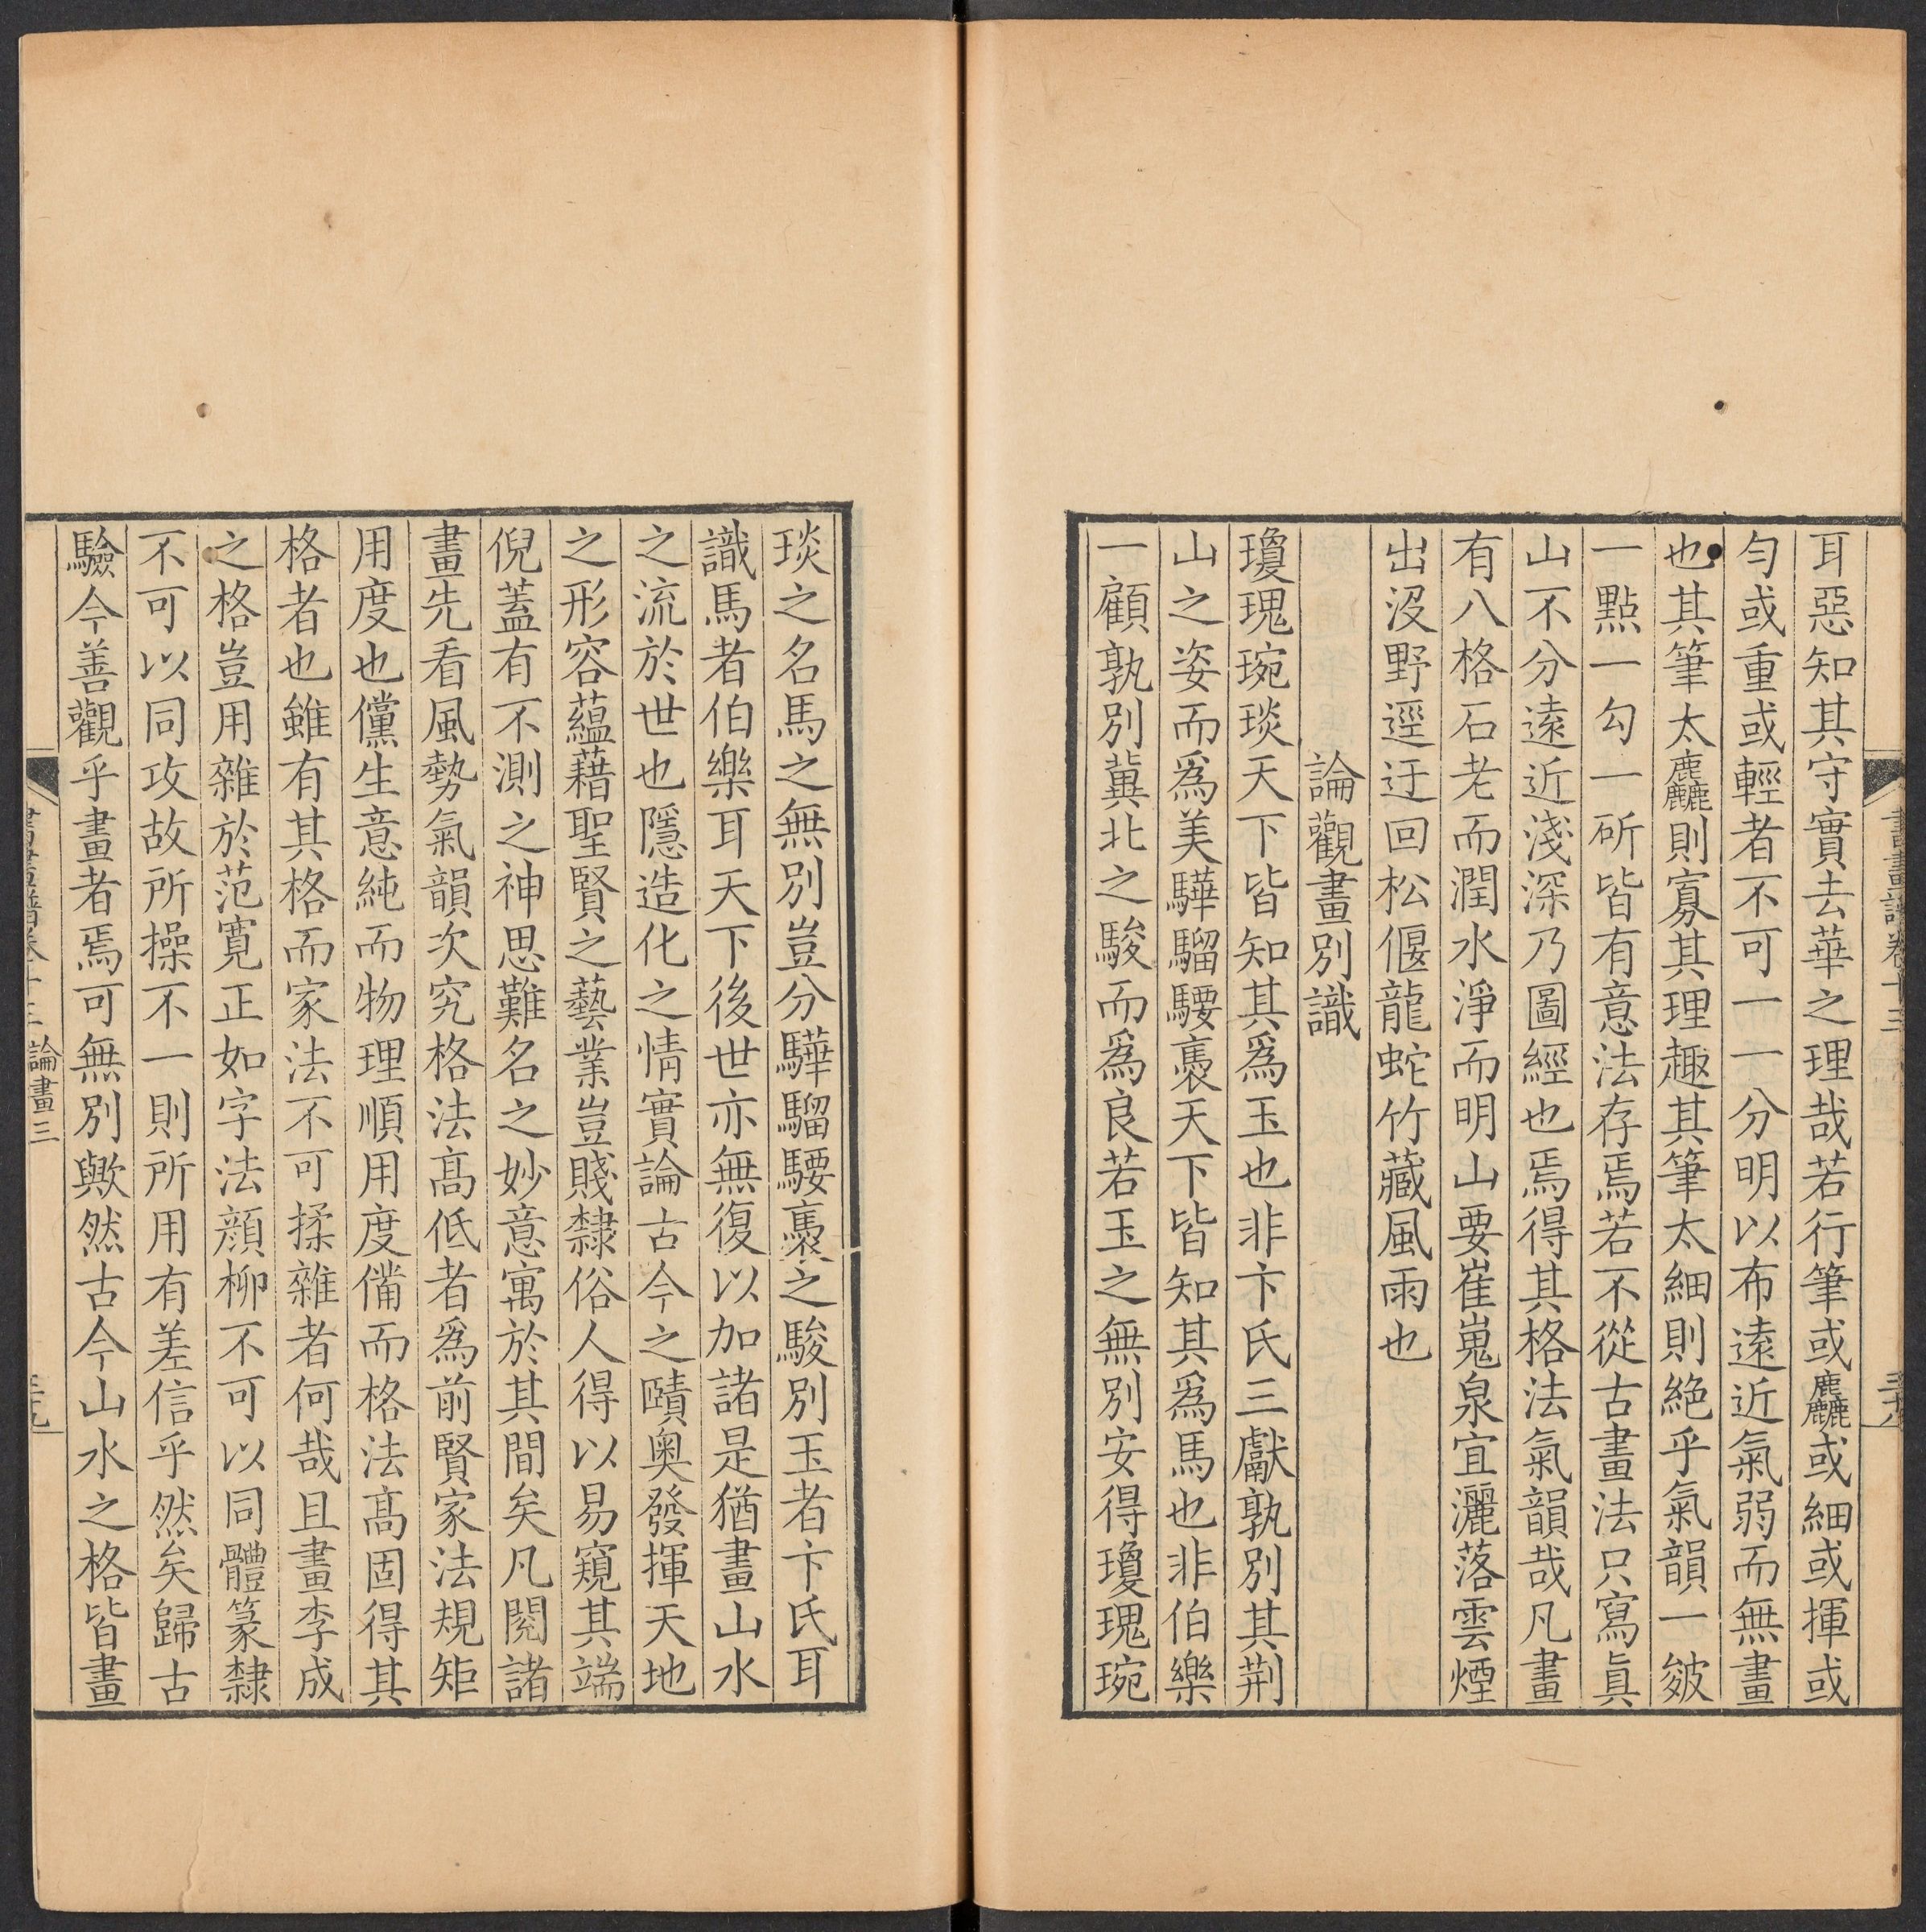 書畫譜卷十三
三十八
耳惡知其守實去華之理哉若行筆或麤或細或揮或
勻或重或輕者不可一一分明以布遠近氣弱而無畫
也其筆太麤則寡其理趣其筆太細則絕乎氣韻一皴
一點一勾一斫皆有意法存焉若不從古畫法只寫眞
山不分遠近淺深乃圖經也焉得其格法氣韻哉凡畫
有八格石老而潤水淨而明山要崔嵬泉宜灑落雲煙
出沒野逕迂回松偃龍蛇竹藏風雨也
論觀畫別識
瓊瑰琬琰天下皆知其爲玉也非卞氏三獻孰別其荆
山之姿而爲美驊騮騕褭天下皆知其爲馬也非伯樂
一顧孰別冀北之駿而爲良若玉之無別安得瓊瑰琬
琰之名馬之無別豈分驊騮騕褭之駿別玉者卞氏耳
識馬者伯樂耳天下後世亦無復以加諸是猶畫山水
之流於世也隱造化之情實論古今之賾奥發揮天地
之形容蘊藉聖賢之藝業豈賤隸俗人得以易窺其端
倪蓋有不測之神思難名之妙意寓於其間矣凡閱諸
畫先看風勢氣韻次究格法髙低者爲前賢家法規矩
用度也儻生意純而物理順用度備而格法髙固得其
格者也雖有其格而家法不可揉雜者何哉且畫李成
之格豈用雜於范寬正如字法顔柳不可以同體篆隸
不可以同攻故所操不一則所用有差信乎然矣歸古
驗今善觀乎畫者焉可無別歟然古今山水之格皆畫
書畫譜卷十三 論畫三
三十九